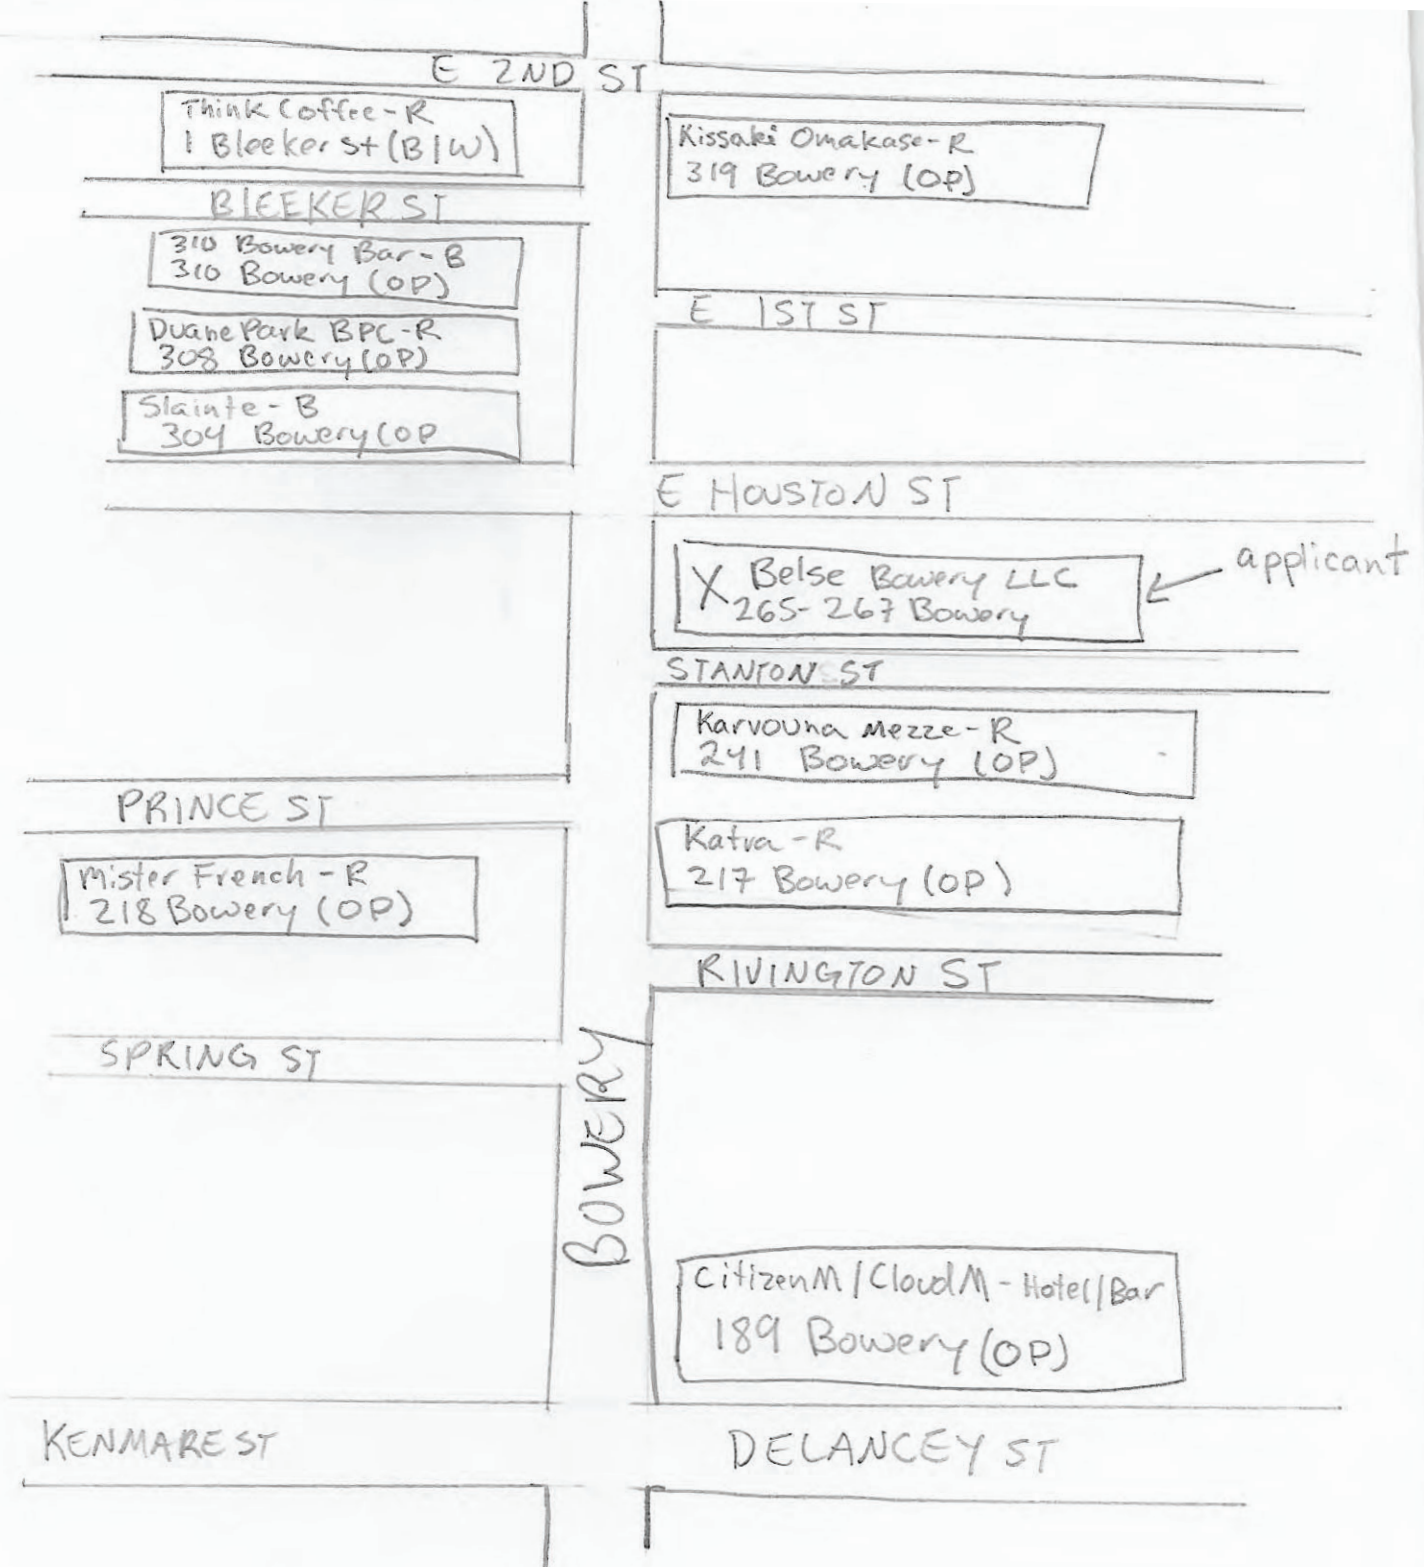 E 2ND ST
Think Coffee-R
1 Bleeker St (B/W)
Kissaki Omakase-R
319 Bowery (OP)
BLEEKER ST
310 Bowery Bar-B
310 Bowery (OP)
Duane Park BPC-R
308 Bowery (OP)
Slainte-B
304 Bowery (OP
E 1ST ST
E HOUSTON ST
X Belse Bowery LLC
265-267 Bowery
applicant
STANTON ST
Karvouna Mezze-R
241 Bowery (OP)
PRINCE ST
Katra-R
217 Bowery (OP)
Mister French-R
218 Bowery (OP)
RIVINGTON ST
SPRING ST
BOWERY
CitizenM/CloudM-Hotel/Bar
189 Bowery (OP)
KENMARE ST
DELANCEY ST